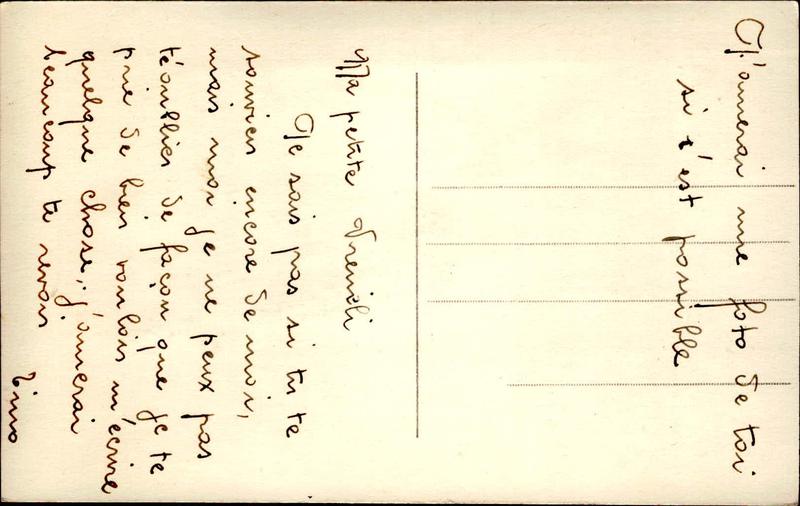 Ma petite Freuidi
Je sais pas si tu te
souvien encore de moi,
mais moi je ne peux pas
t'éoublier de façon que je te
prie de bien vouloir m'écrire
quelque chose, j'amerai
beaucoup te revoir
Timo
J'amerai une foto de toi
si c'est possible